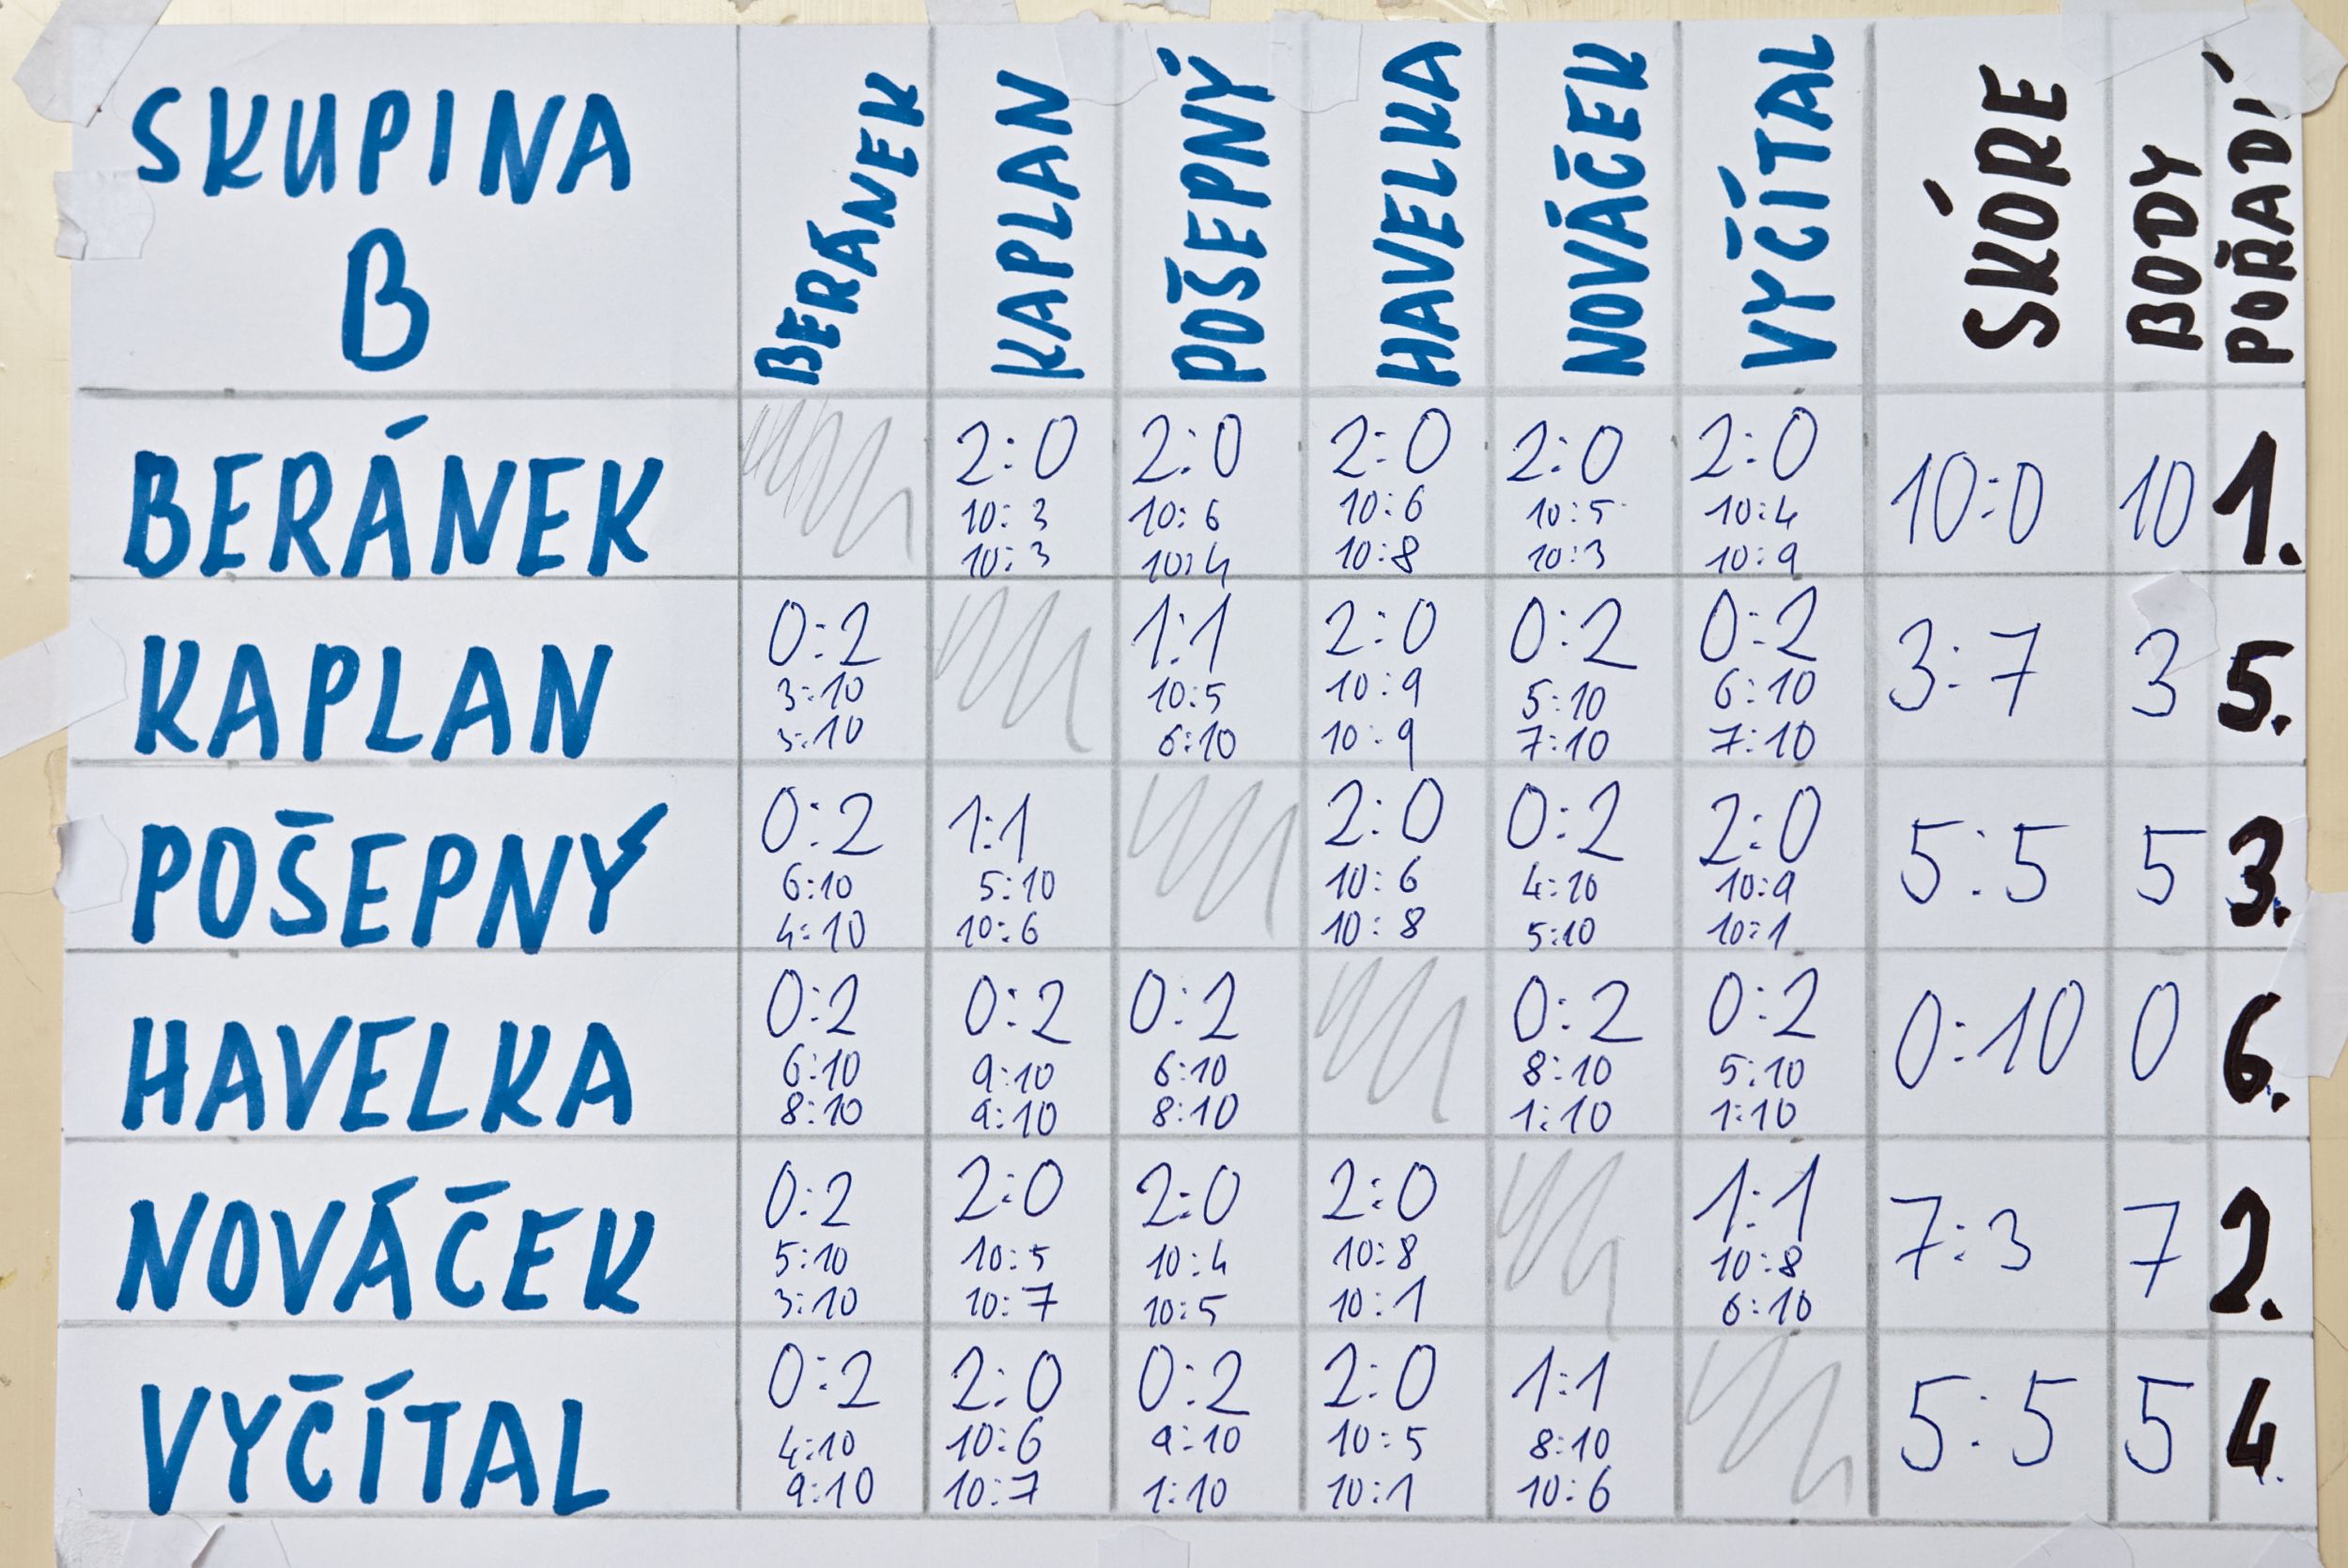 SKUPINA B BERÁNEK KAPLAN POŠEPNÝ HAVELKA NOVÁČEK VYČÍTAL SKÓRE BODY POŘADÍ
BERÁNEK 2:0 2:0 2:0 2:0 2:0 10:0 10 1.
10:3 10:6 10:6 10:5 10:4
10:3 10:4 10:8 10:3 10:9
KAPLAN 0:2 1:1 2:0 0:2 0:2 3:7 3 5.
3:10 10:5 10:9 5:10 6:10
3:10 6:10 10:9 7:10 7:10
POŠEPNÝ 0:2 1:1 2:0 0:2 2:0 5:5 5 3.
6:10 5:10 10:6 4:10 10:9
4:10 10:6 10:8 5:10 10:1
HAVELKA 0:2 0:2 0:2 0:2 0:2 0:10 0 6.
6:10 9:10 6:10 8:10 5:10
8:10 9:10 8:10 1:10 1:10
NOVÁČEK 0:2 2:0 2:0 2:0 1:1 7:3 7 2.
5:10 10:5 10:4 10:8 10:8
3:10 10:7 10:5 10:1 6:10
VYČÍTAL 0:2 2:0 0:2 2:0 1:1 5:5 5 4.
4:10 10:6 9:10 10:5 8:10
9:10 10:7 1:10 10:1 10:6